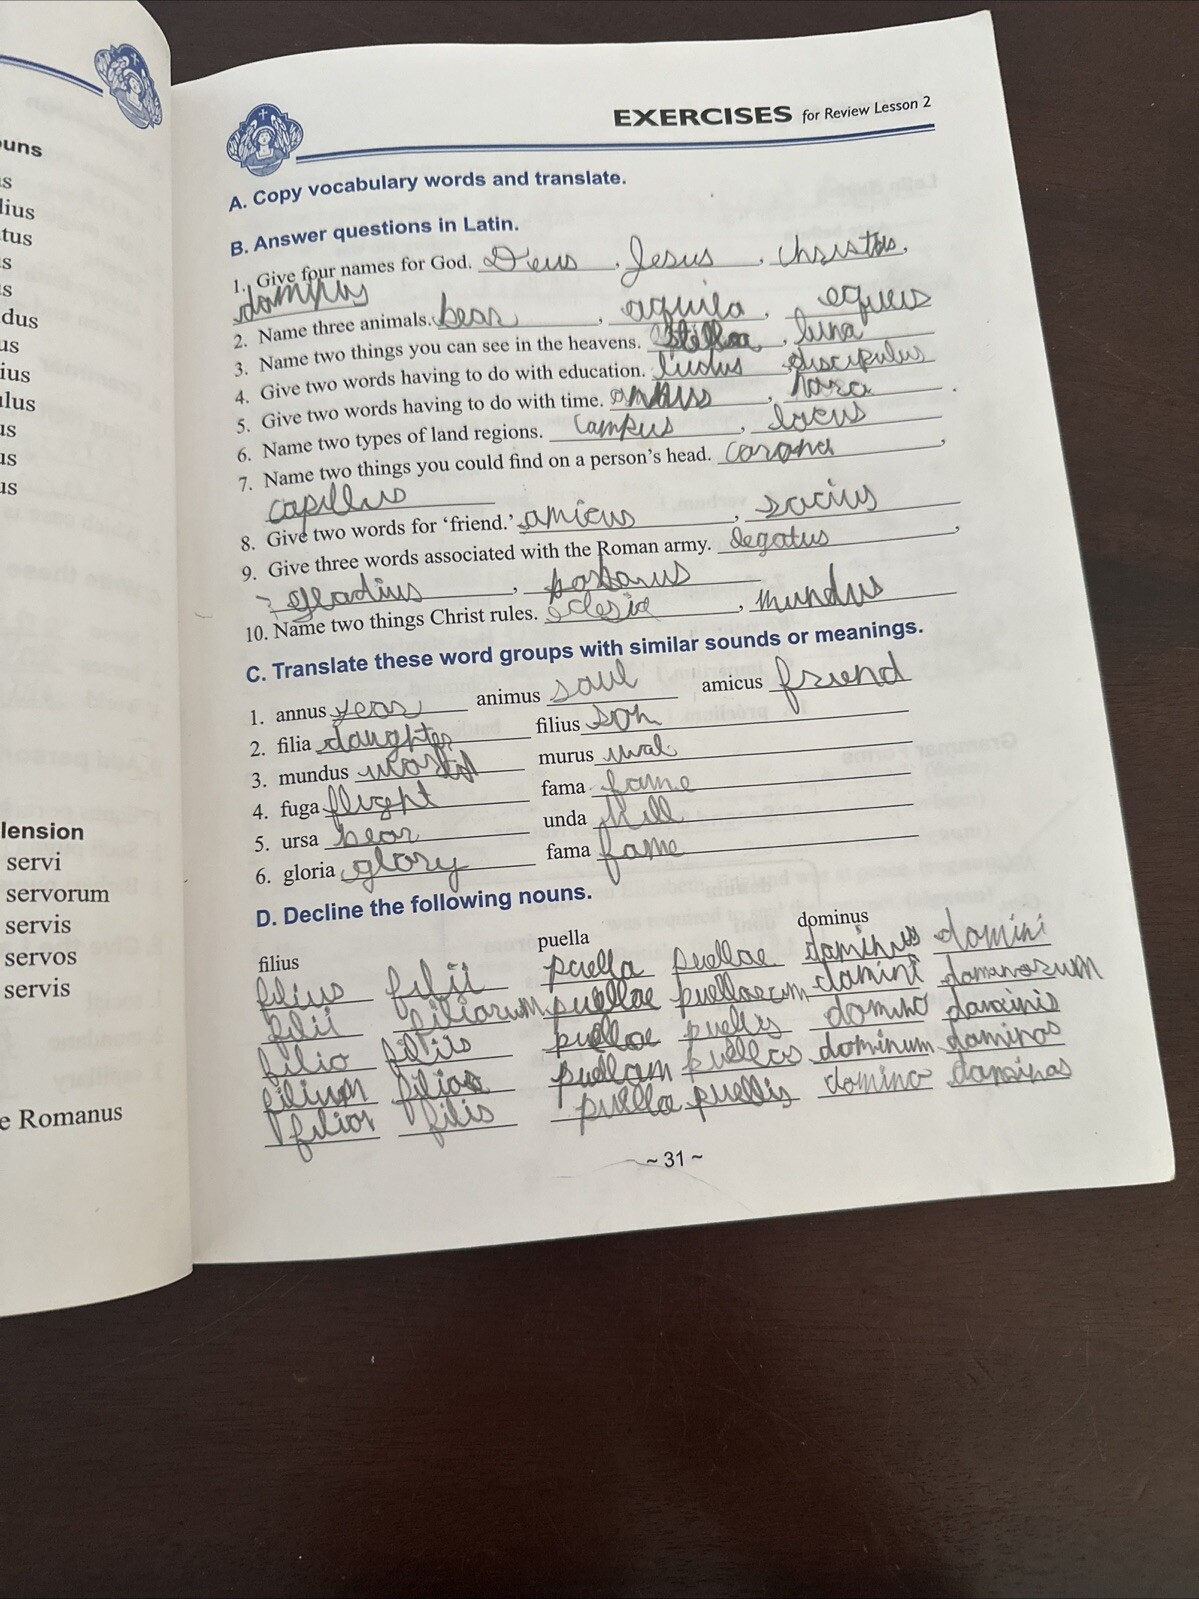 EXERCISES for Review Lesson 2
A. Copy vocabulary words and translate.
B. Answer questions in Latin.
1. Give four names for God. Deus, Jesus, Christus,
dominus
2. Name three animals. bear, aquila, equus
3. Name two things you can see in the heavens. Stella, luna
4. Give two words having to do with education. ludus discipulus
5. Give two words having to do with time. annus, hora.
6. Name two types of land regions. campus, locus
7. Name two things you could find on a person's head. corona,
capillus
8. Give two words for 'friend.' amicus, socius
9. Give three words associated with the Roman army. legatus,
gladius,
10. Name two things Christ rules. eclesia, mundus
C. Translate these word groups with similar sounds or meanings.
1. annus year animus soul amicus friend
2. filia daughter filius son
3. mundus world murus wal
4. fuga flight fama fame
5. ursa bear unda hill
6. gloria glory fama fame
D. Decline the following nouns.
filius puella dominus
filius filii puella puellae dominus domini
filii filiorum puellae puellarum domini dominorum
filio filiis puellae puellis domino dominis
filium filios puellam puellas dominum dominos
filior filis puella puellis domino dominos
~ 31 ~
uns
s
lius
tus
s
s
dus
us
ius
lus
us
us
us
lension
servi
servorum
servis
servos
servis
e Romanus